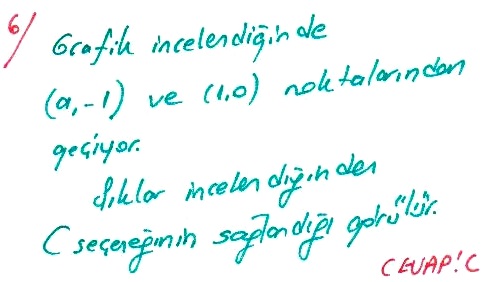 6/ Grafik incelendiğinde
(a,-1) ve (1,0) noktalarından
geçiyor.
Şıklar incelendiğinden
C seçeneğinin sağlandığı görülür.
CEVAP:C